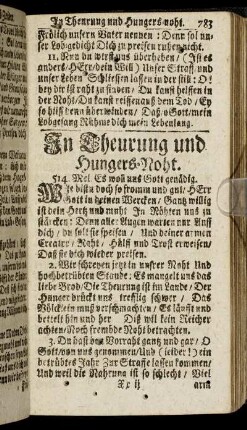 In Theurung und Hungers-noht. 783
Frölich unsern Vater nennen: Denn sol un-
ser Lobgedicht Dich zu preisen ruhen nicht.
11. Nun du wirst uns überheben / (Ist es
anders / HErr / dein Will) Unser Straff und
unser Leben Schliessen lassen in der still: O!
bey dir ist raht zu finden / Du kanst helffen in
der Noht / Du kanst reissen auß dem Tod / Ey
so hilff denn überwinden / Daß / o Gott / mein
Lobgesang Rühme dich mein Lebenlang.
In Theurung und
Hungers-Noht.
514. Mel. Es woll uns Gott genädig.
Wie bistu doch so fromm und gut / HErr
Gott in deinen Wercken / Gantz willig
ist dein Hertz und muht In Nöhten uns zu
stärcken: Denn aller Augen warten nur Auff
dich / du solt sie speisen / Und deiner armen
Creatur / Raht / Hülff und Trost erweisen /
Daß sie dich wieder preisen.
2. Wir schreyen jetzt in unser Noht Und
hochbetrübten Stunde: Es mangelt uns das
liebe Brod / Die Theurung ist im Lande / Der
Hunger drückt uns trefflich schwer / Das
Völcklein muß verschmachten / Es läufft und
bettelt hin und her Diß wil kein Reicher
achten / Noch frembde Noht betrachten.
3. Du hast den Vorraht gantz und gar / O
Gott / von uns genommen / Und (leider!) ein
betrübtes Jahr Zur Straffe lassen kommen /
Und weil die Nahrung ist so schlecht / Viel
ij arm